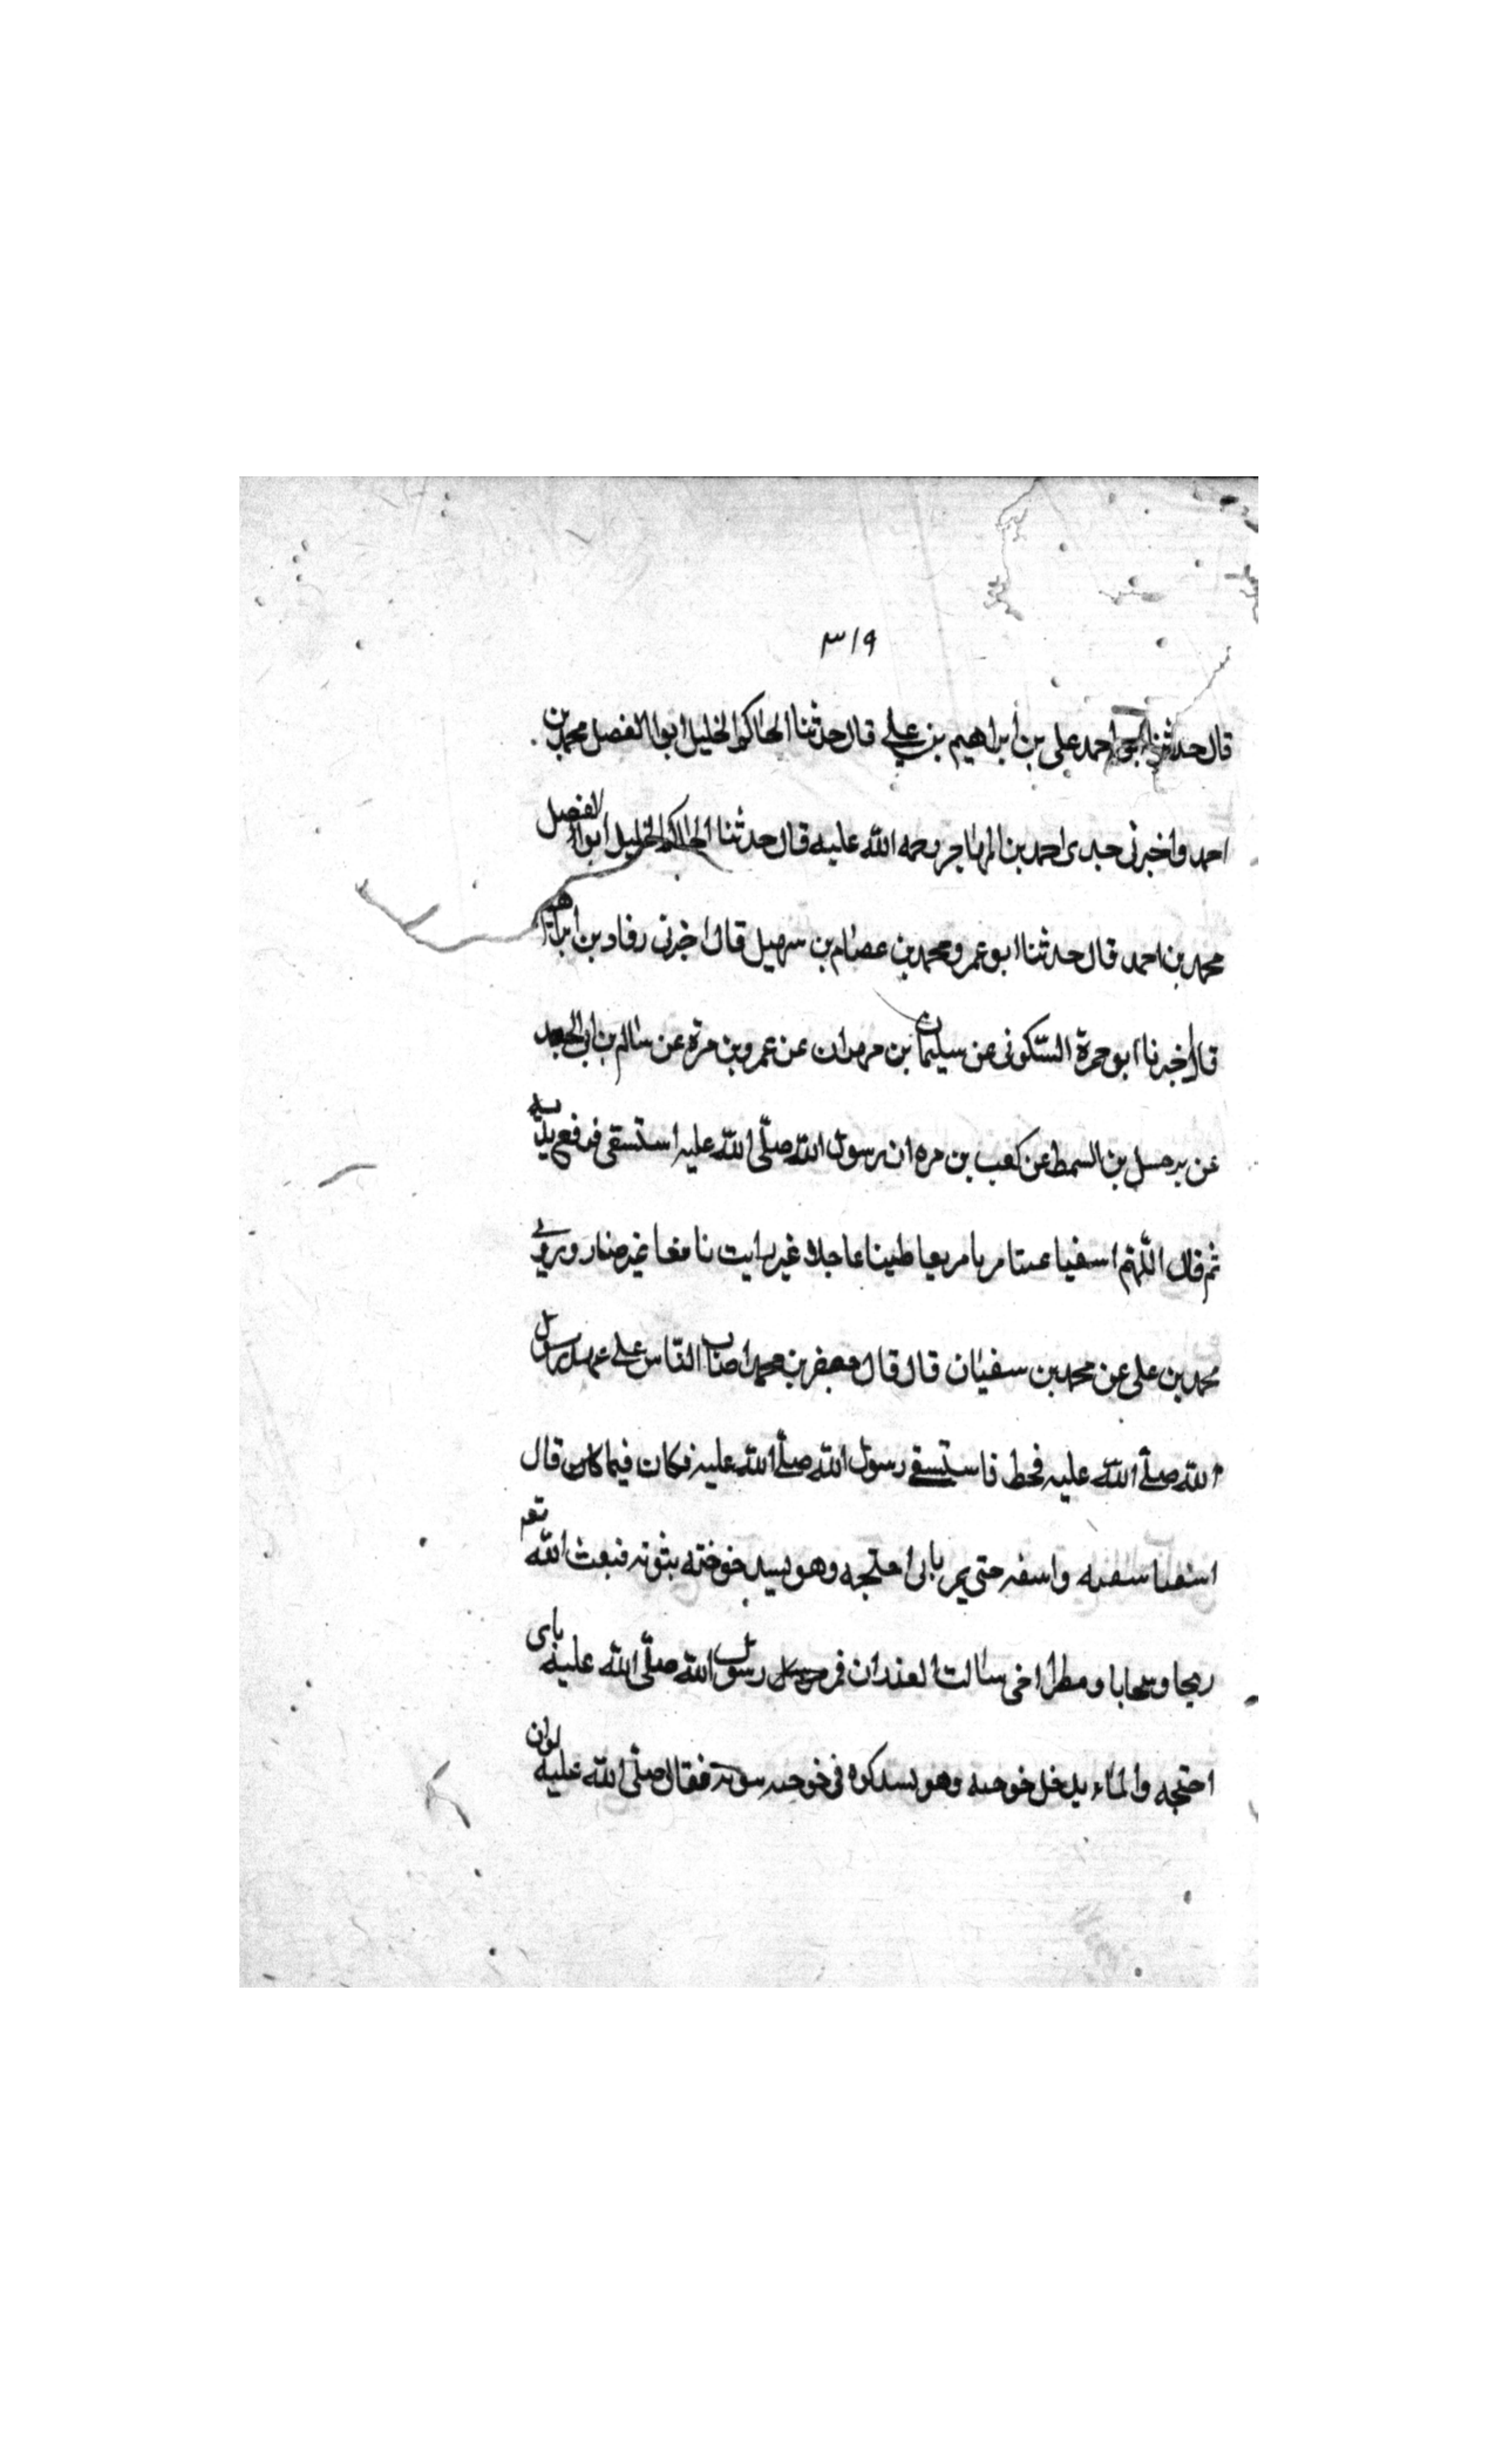 ٣١٩
قال حدثنا ابو احمد على بن ابراهيم بن على قال حدثنا الحاكم الخليل ابو الفضل محمد بن
احمد واخبرنى جدى احمد بن المهاجر رحمه الله عليه قال حدثنا الحاكم الخليل ابو الفضل
محمد بن احمد قال حدثنا ابو عمرو محمد بن عصام بن سهيل قال اخبرنى رفاد بن ابراهيم
قال اخبرنا ابو حمزة السّكونى عن سليمان بن مهران عن عمرو بن مرّة عن سالم بن ابى الجعد
عن بن السمط عن كعب بن مره ان رسول الله صلّى الله عليه استسقى فرفع يديه
ثم قال اللّهم اسقنا مريا مريعا طبقا عاجلا غير رايث نافعا غير ضار وروى
محمد بن على عن محمد بن سفيان قال قال جعفر بن محمد اصاب النّاس على عهد رسول
الله صلّى الله عليه قحط فاستسقى رسول الله صلّى الله عليه فكان فيما كان قال
واسقه حتى يمر بابى وهو يسد خوخته بثوبه فبعث الله تعم
ريحا وسحابا ومطرا سالت الغدران فمر رسول الله صلّى الله عليه بابى
والماء يدخل وهو فى فقال صلّى الله عليه لو ان